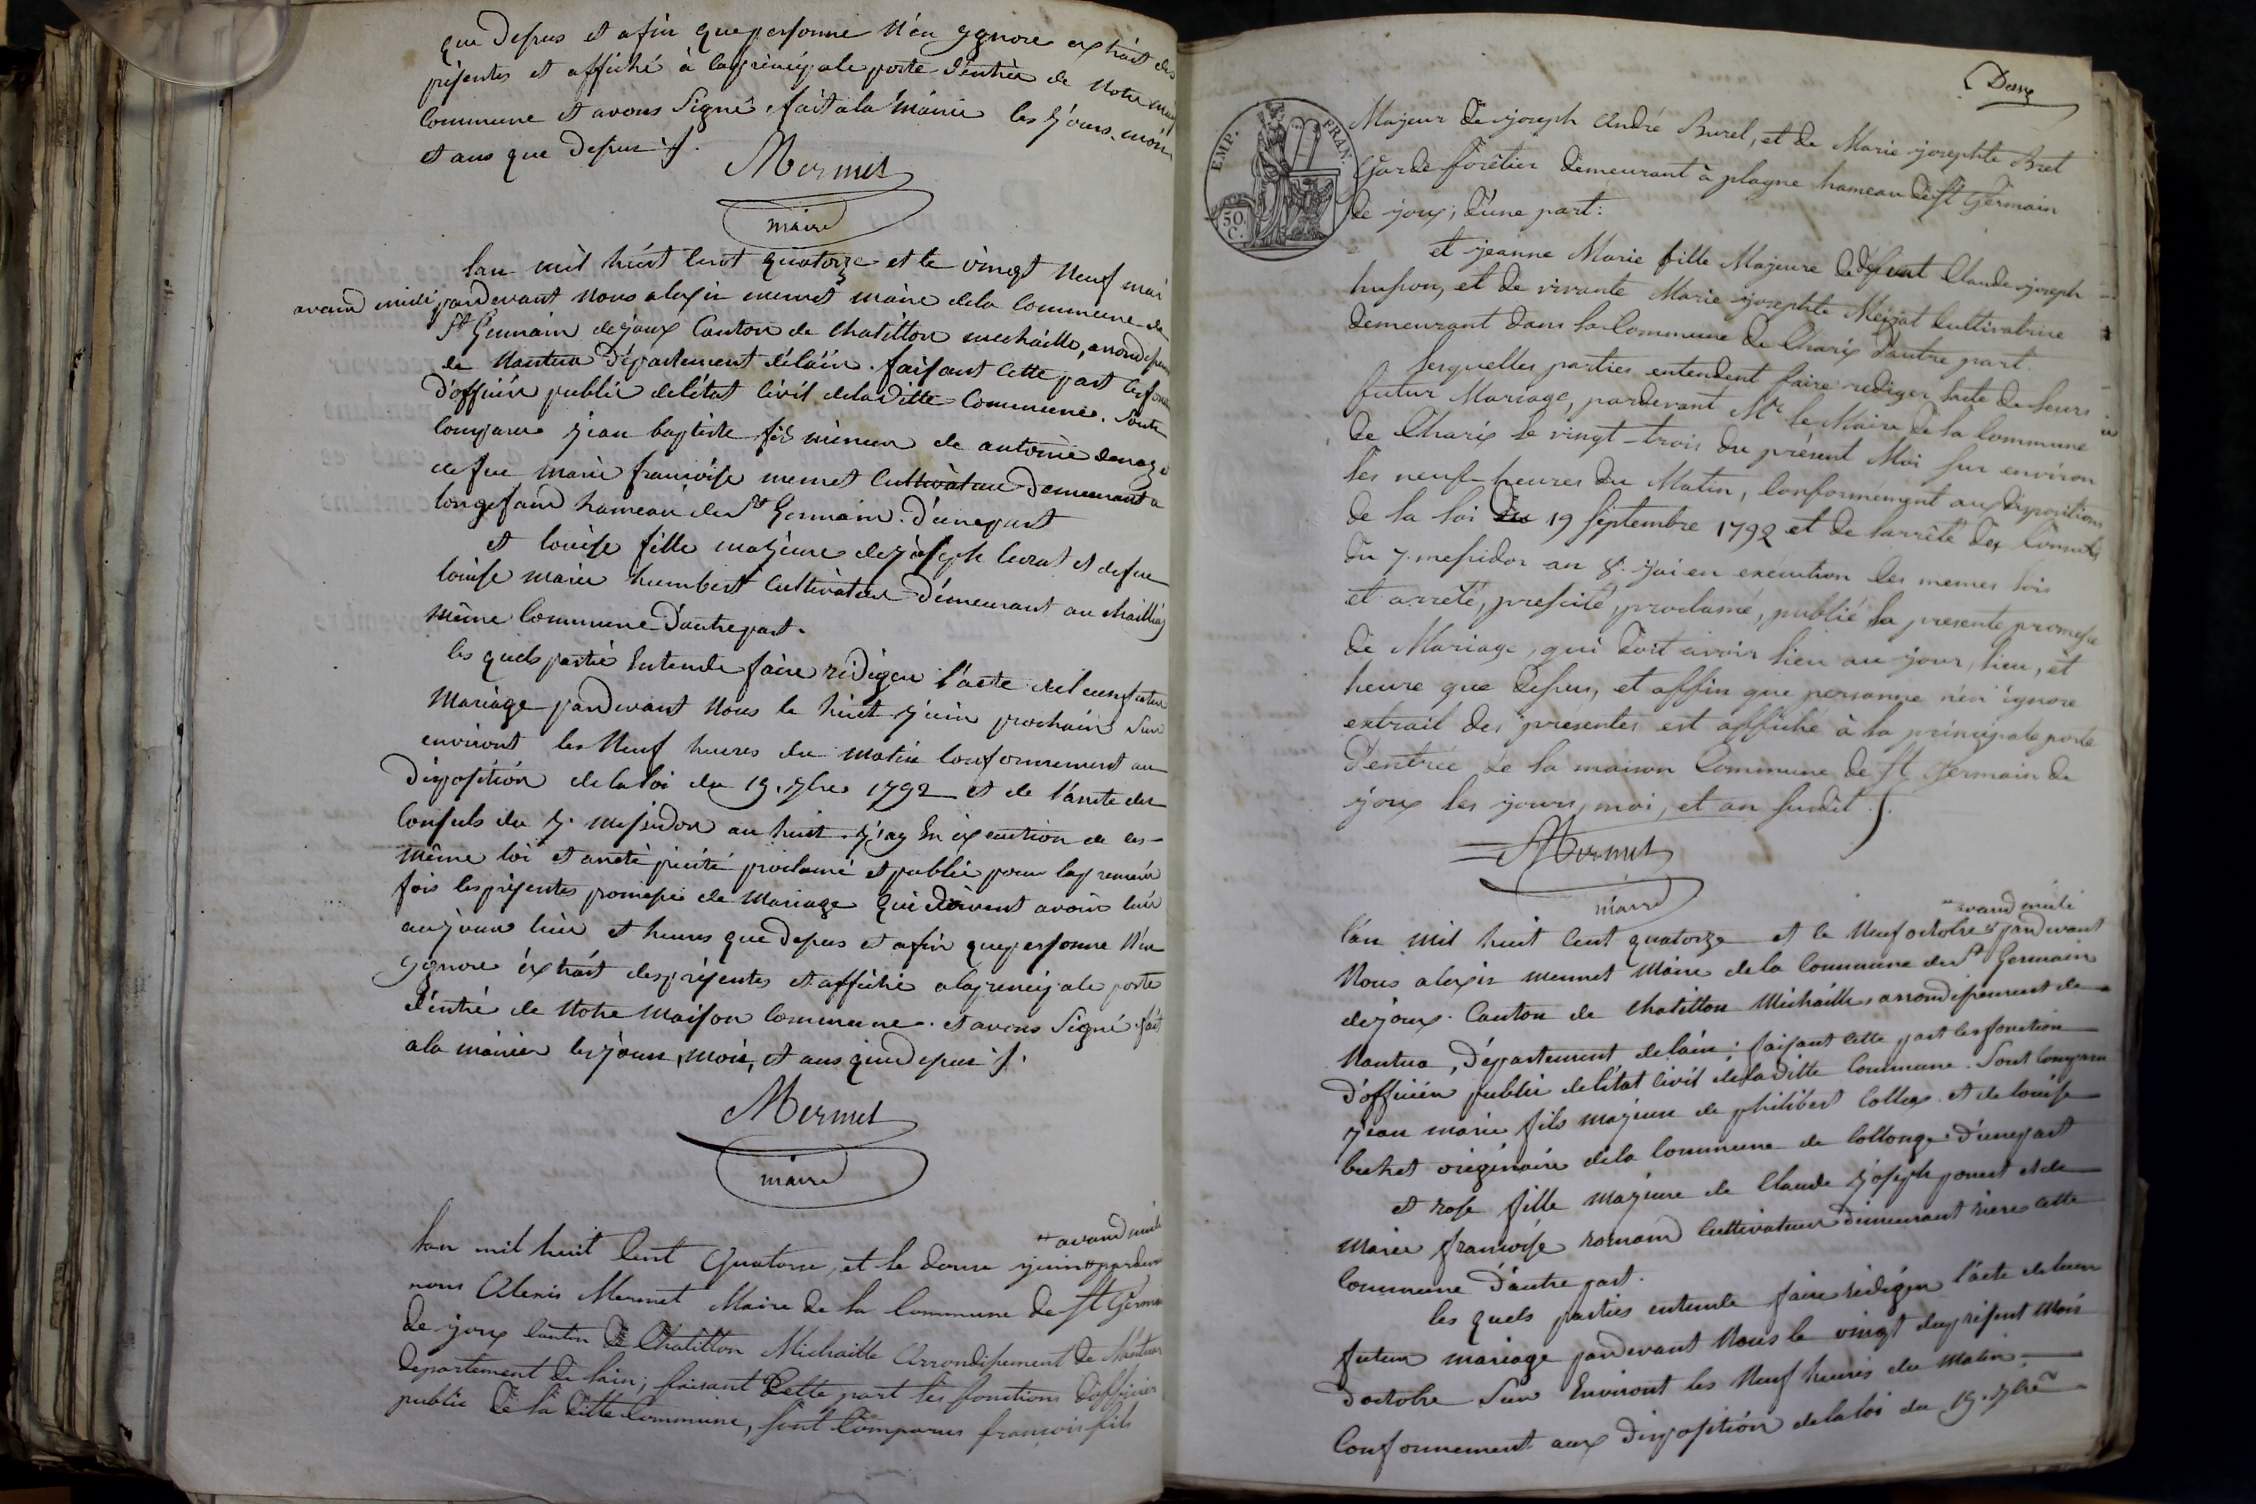 que dessus et afin que personne n'en ygnore extrait des
présentes et affiché à la principale porte d'entrée de notre
commune et avons signé fait a la mairie les jours, mois
et ans que dessus
Mermet
maire
lan mil huit cent quatorze et le vingt neuf mai
avand midi pardevant nous alexis mermet maire de la commune de
St Germain de joux Canton de chatillon michaille, arrondissement
de Nantua Département de lain. faisant cette part les fonction
d'officier public de létat civil de la ditte commune. sont
comparu jean baptiste fils mineur de antoine
de feu marie françoise mermet cultivateur demeurant a
longefand hameau de St Germain. d'une part
et louise fille majeure de joseph et de feu
louise marie humbert cultivateur demeurant au
même commune d'autre part.
les quels partie entende faire rédiger l'acte de leur futur
mariage pardevant nous le huit juin prochain sur
environt les neuf heures du matin conformement au
disposition de la loi du 19. 7bre 1792 et de l'arrete des
Consuls du 7. messidor an huit. j'ay en execution de ces
même loi et arreté précité proclamé et publié pour la premier
fois les présentes promesse de mariage qui doivent avoir lieu
au jour lieu et heures que dessus et afin que personne n'en
ygnore éxtrait des présentes et affiché a la principale porte
d'entré de notre maison commune. et avons signé fait
a la mairie les jours, mois, et ans que dessus
Mermet
maire
avand midi
lan mil huit cent quatorze, et le douze juin pardevant
nous Alexis Mermet Maire de la Commune de St Germain
de joux canton de Chatillon Michaille arrondissement de Nantua
departement de lain; faisant cette part les fonctions d'officier
public de la ditte commune, sont comparus françois fils
EMP. FRAN.
50 C.
Majeur de joseph andré Burel, et de Marie josephte Bret
Garde forêtier demeurant à plagne hameau de St Germain
de joux; d'une part:
et jeanne Marie fille Majeure de défunt Claude joseph
husson, et de vivante Marie josephte Mejat cultivatrice
demeurant dans la commune de Charix d'autre part.
lesquelles parties entendent faire rediger lacte de leurs
futur Mariage, pardevant Mr le Maire de la commune
de Charix le vingt-trois du présent Moi sur environ
les neuf heures du Matin, conformément aux dispositions
de la loi du 19 septembre 1792 et de larrêté des Consuls
du 7. messidor an 8. j'ai en exécution des memes lois
et arreté, précité, proclamé, publié la presente promesse
de Mariage, qui doit avoir lieu au jour, lieu, et
heure que dessus, et affin que personne n'en ignore
extrait des presentes est affiché à la principale porte
d'entrée de la maison commune de St Germain de
joux les jours, moi, et an susdit
Mermet
maire
avand midi
l'an mil huit cent quatorze et le neuf octobre pardevant
nous alexis mermet maire de la commune de St Germain
de joux. Canton de chatillon michaille arrondissement de
Nantua, Département de lain; faisant cette part les fonction
d'officier public de létat civil de la ditte commune. sont comparu
jean marie fils majeur de philibert Collex et de louise
originaire de la commune de Collonge d'une part
et rose fille majeure de Claude joseph ponet et de
marie françoise romand cultivateur demeurant riere cette
commune d'autre part.
les quels parties entende faire rédiger l'acte de leur
futur mariage pardevant nous le vingt du présent mois
d'octobre sur environt les neuf heures du matin.
Conformement aux disposition de la loi du 19. 7bre